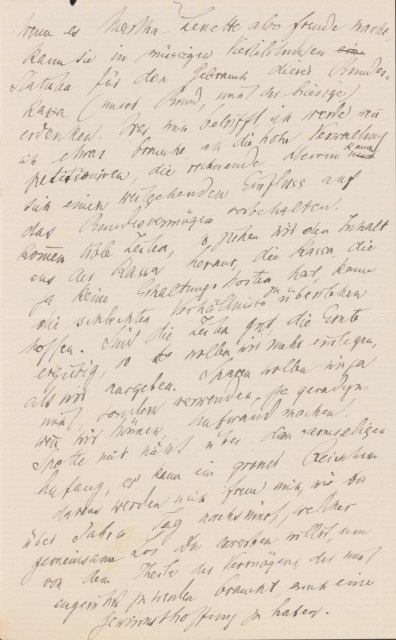 wenn es Martha Zenette also freude macht
kann sie in müssigen
Statuten für den Gebrauch dieser Bundes-
kassa (unser Bund, nicht der hiesige)
erdenken. Was mich betrifft ich werde wen
ich etwas brauche, an die hohe Verwaltung
petitioniren, die rechnende kann
sich einen weitgehenden Einfluss auf
das Bundesvermögen vorbehalten.
Kommen üble Zeiten, so ziehen wir den Inhalt
aus der Kassa heraus, die Kassa, die
ja keine Erhaltungskosten hat, kann
die schlechten Verhältnisse zu überstehen
hoffen. Sind die Zeiten gut, die Ernte
ergiebig, so wollen wir mehr einlegen,
als wir ausgeben. Sparen wollen wir ja
nicht, sondern verwenden, ja geradezu
wen wir können, Aufwand machen.
Spotte mir nicht über den armseligen
Anfang, es kann ein grosses
daraus werden
über Jahr Tag nachsinnst, welches
gemeinsame Los Du werden willst, um
von dem Theile des Vermögens der nicht
angerührt zu werden braucht auch eine
Gewinnsthoffnung zu haben.